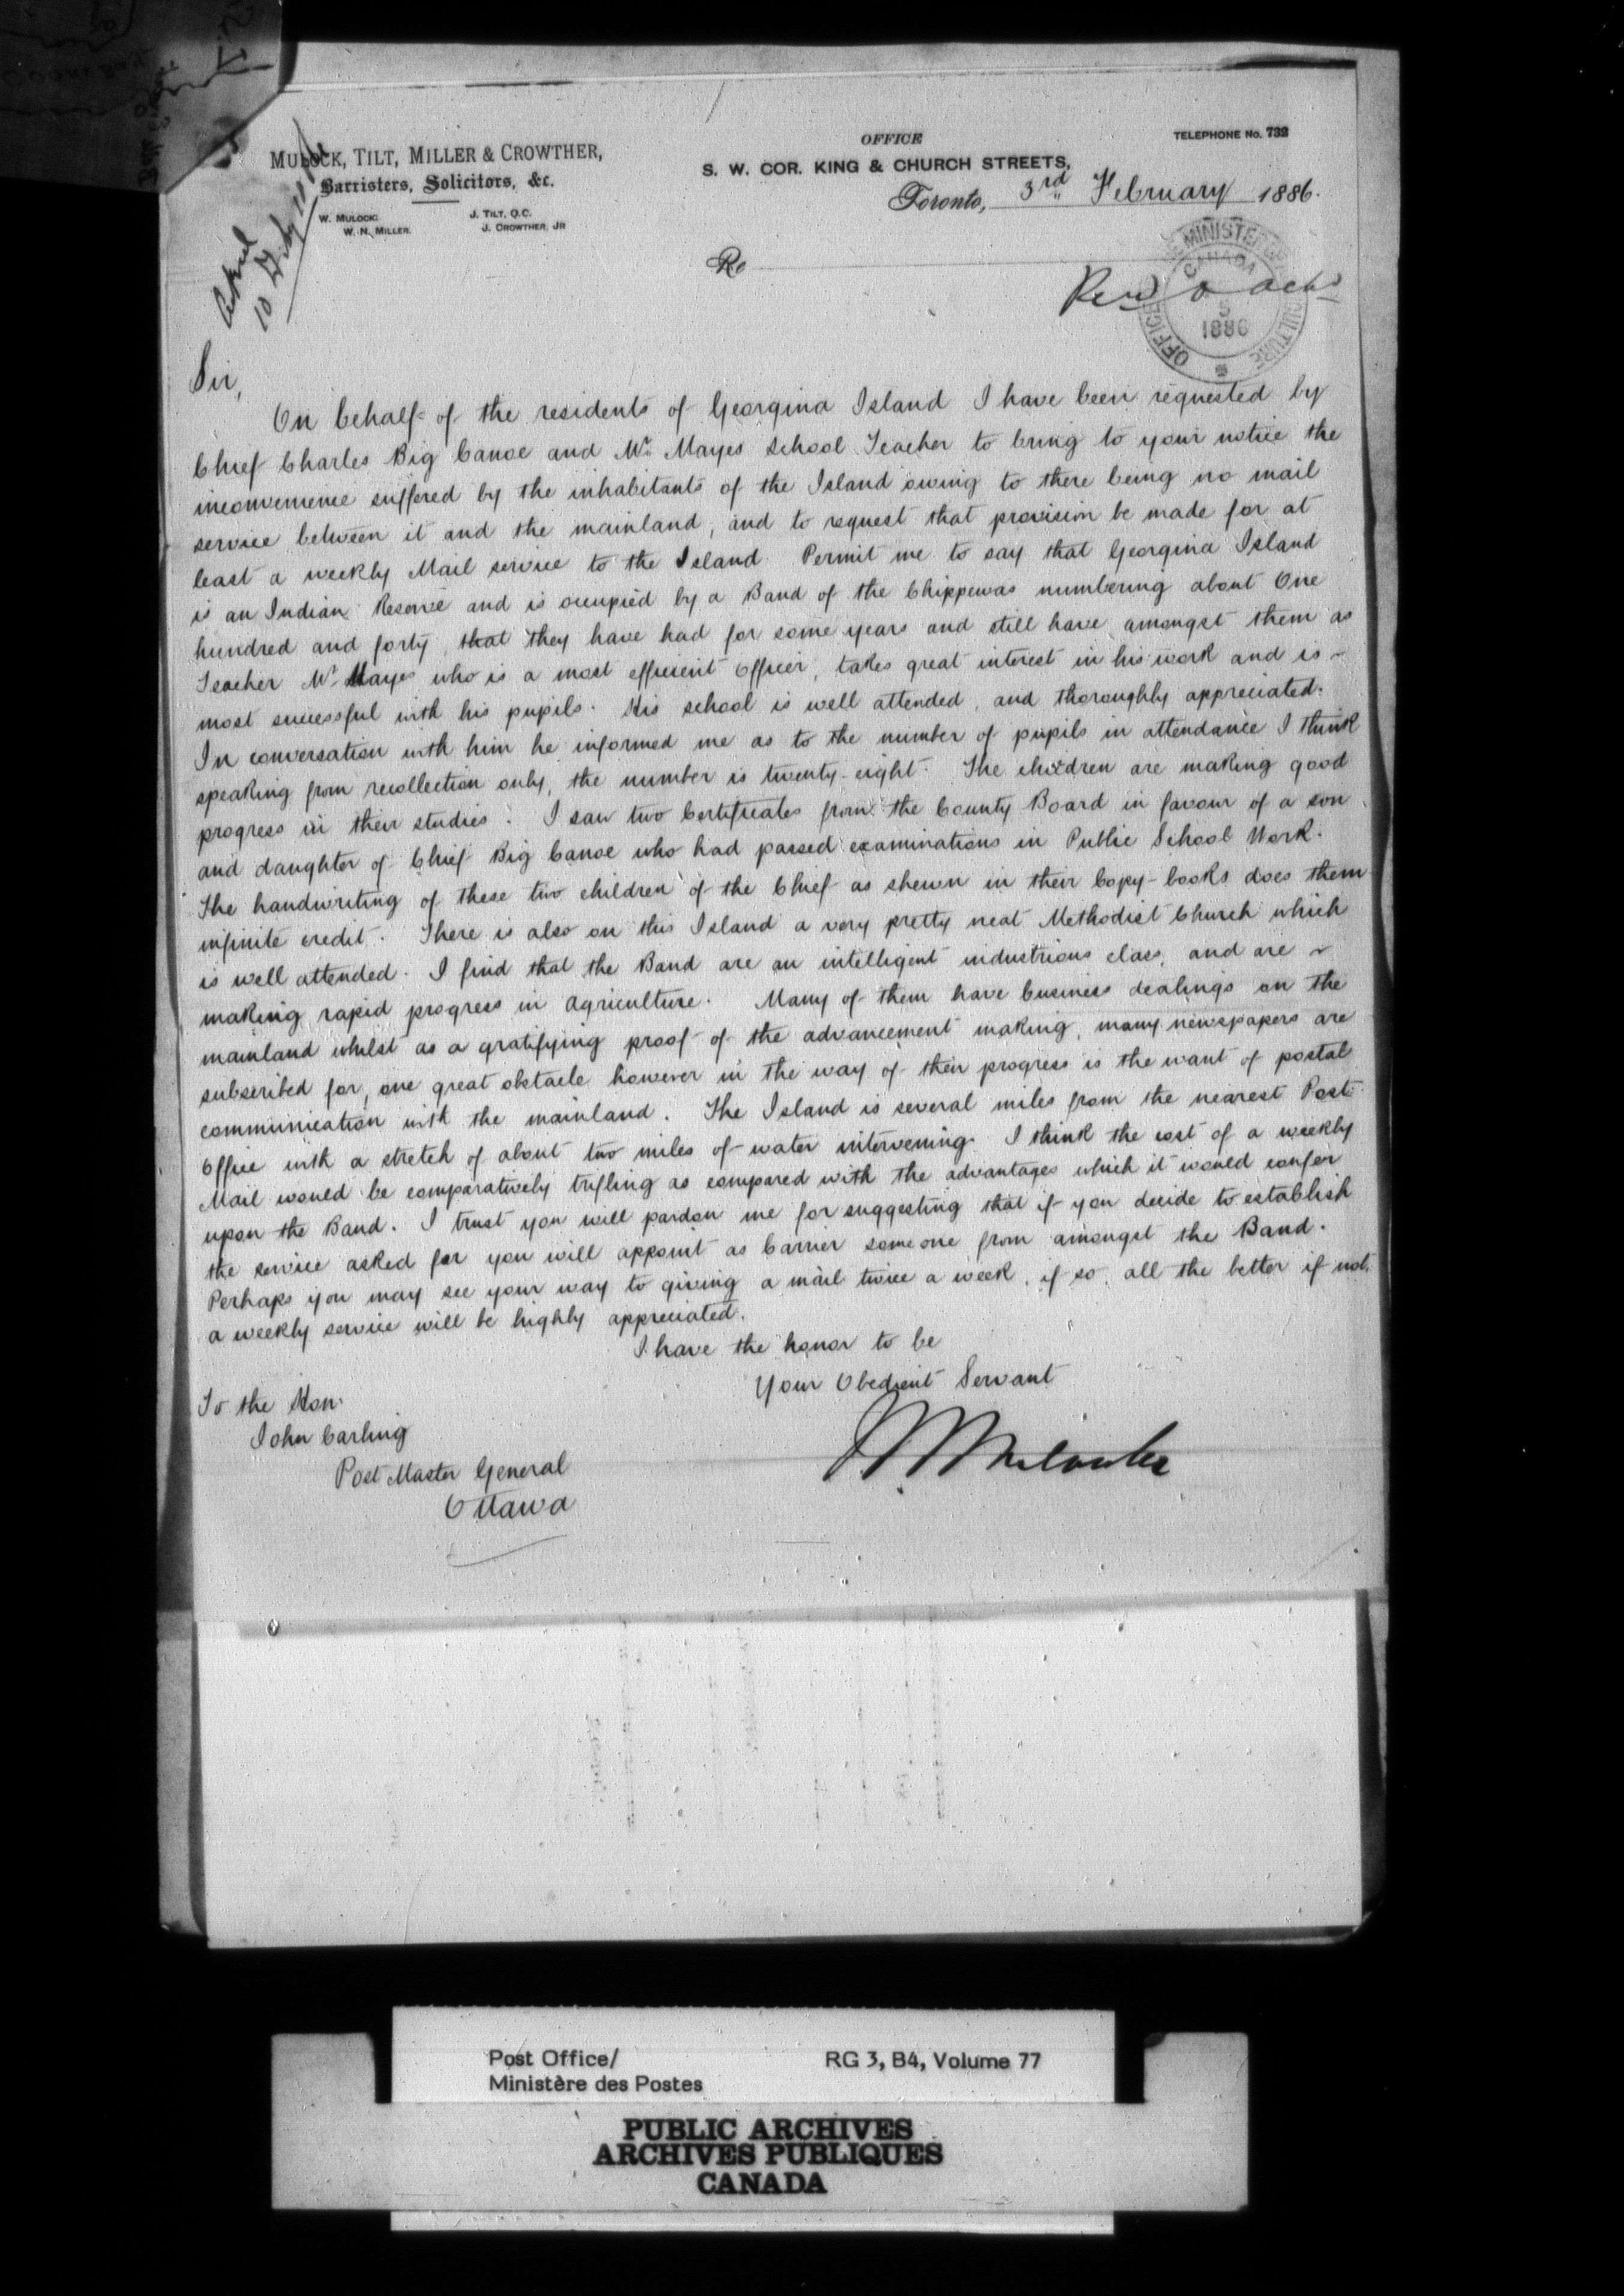 MULOCK, TILT, MILLER & CROWTHER,
Barristers, Solicitors, &c.
W. MULOCK. J. TILT, Q.C.
W. N. MILLER. J. CROWTHER, JR
OFFICE
S. W. COR. KING & CHURCH STREETS,
TELEPHONE No. 732
Toronto, 3rd February 1886.
Re
OFFICE MINISTER CULTURE
CANADA
5
1886
10 Feby
Sir,
On behalf of the residents of Georgina Island I have been requested by
Chief Charles Big Canoe and Mr. Mayes School Teacher to bring to your notice the
inconvenience suffered by the inhabitants of the Island owing to there being no mail
service between it and the mainland, and to request that provision be made for at
least a weekly Mail service to the Island. Permit me to say that Georgina Island
is an Indian Reserve and is occupied by a Band of the Chippewas numbering about One
hundred and forty, that they have had for some years and still have amongst them as
Teacher Mr. Mayes who is a most efficient officer, takes great interest in his work and is
most successful with his pupils. His school is well attended, and thoroughly appreciated.
In conversation with him he informed me as to the number of pupils in attendance I think
speaking from recollection only, the number is twenty-eight. The children are making good
progress in their studies. I saw two Certificates from the County Board in favour of a son
and daughter of Chief Big Canoe who had passed examinations in Public School Work.
The handwriting of these two children of the Chief as shewn in their Copy-books does them
infinite credit. There is also on this Island a very pretty neat Methodist Church which
is well attended. I find that the Band are an intelligent industrious class, and are
making rapid progress in agriculture. Many of them have business dealings on the
mainland whilst as a gratifying proof of the advancement making, many newspapers are
subscribed for, one great obstacle however in the way of their progress is the want of postal
communication with the mainland. The Island is several miles from the nearest Post
Office with a stretch of about two miles of water intervening. I think the cost of a weekly
Mail would be comparatively trifling as compared with the advantages which it would confer
upon the Band. I trust you will pardon me for suggesting that if you decide to establish
the service asked for you will appoint as Carrier some one from amongst the Band.
Perhaps you may see your way to giving a mail twice a week, if so, all the better if not,
a weekly service will be highly appreciated.
I have the honor to be
Your Obedient Servant
W Mulock
To the Hon.
John Carling
Post Master General
Ottawa
Post Office/ RG 3, B4, Volume 77
Ministère des Postes
PUBLIC ARCHIVES
ARCHIVES PUBLIQUES
CANADA